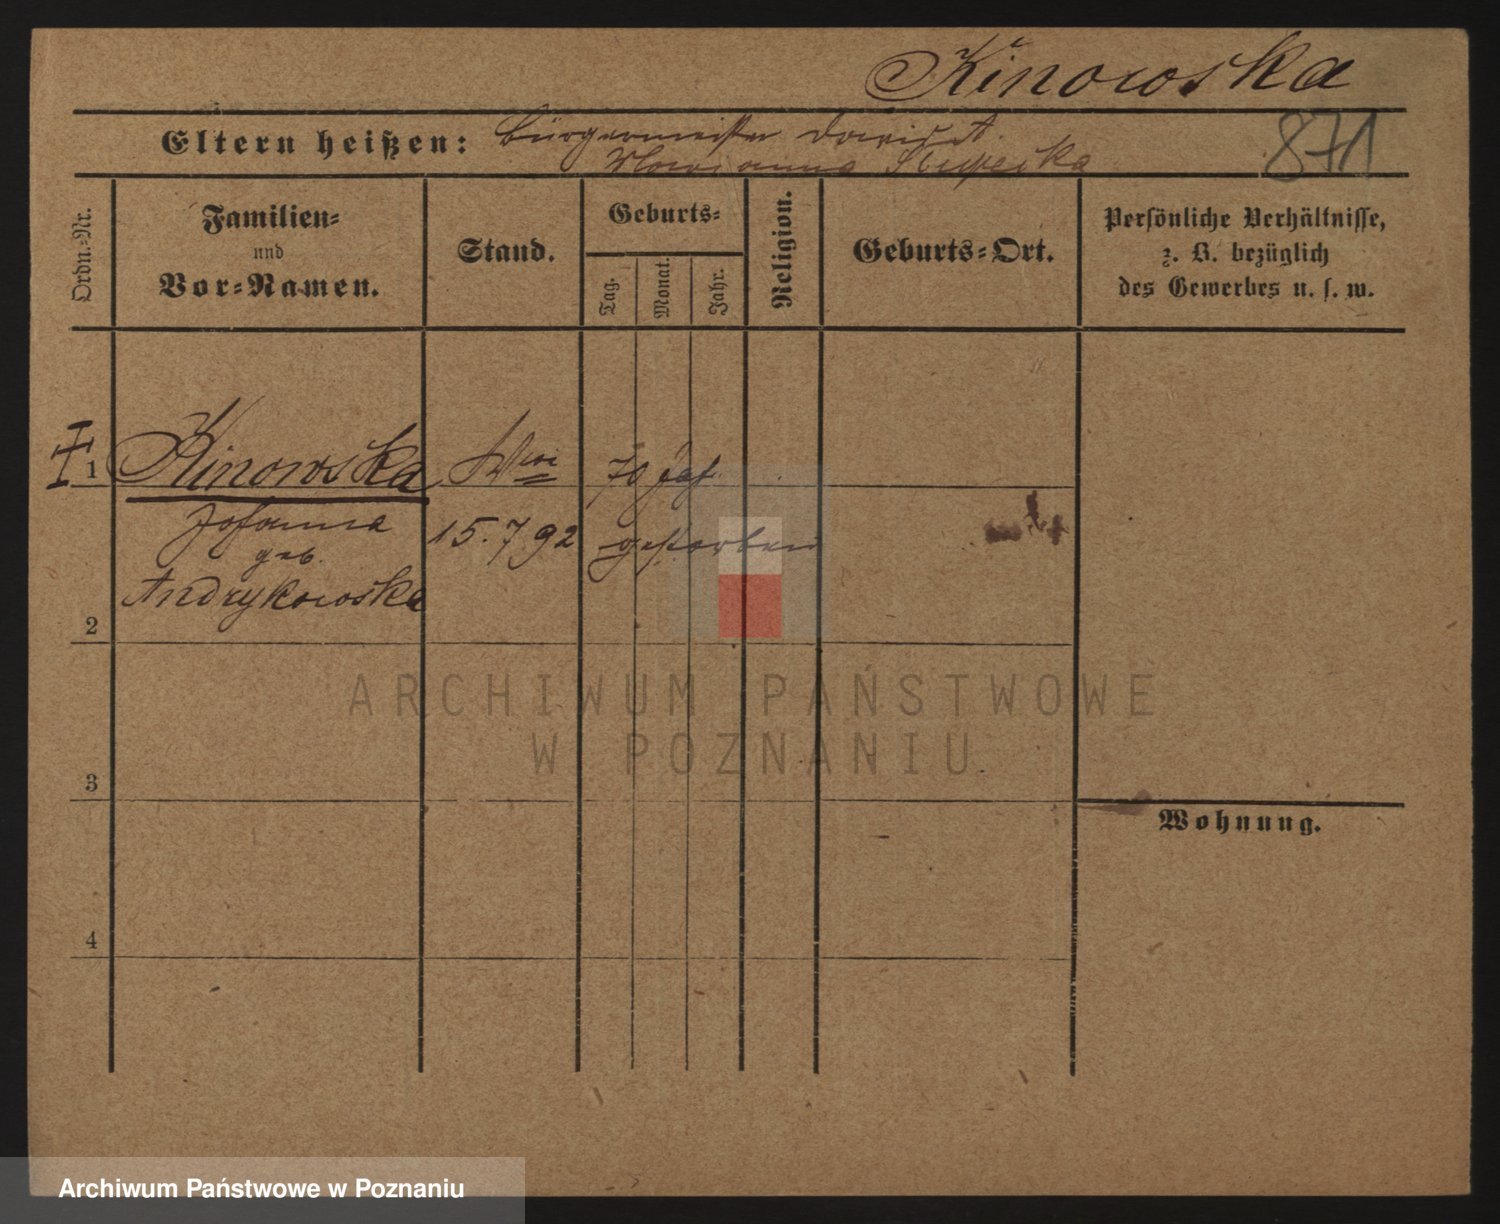 Kinowska
Eltern heißen: Bürgermeister David A.
871
Ordn.-Nr.
Familien-
und
Vor-Namen.
Stand.
Geburts-
Tag.
Monat.
Jahr.
Religion.
Geburts-Ort.
Persönliche Verhältnisse,
z. B. bezüglich
des Gewerbes u. s. w.
1 Kinowska 70 Jah
Johanna 15.7 92 gestorben
geb.
Andrykowska
2
3
4
Wohnung.
ARCHIWUM PAŃSTWOWE
W POZNANIU
Archiwum Państwowe w Poznaniu